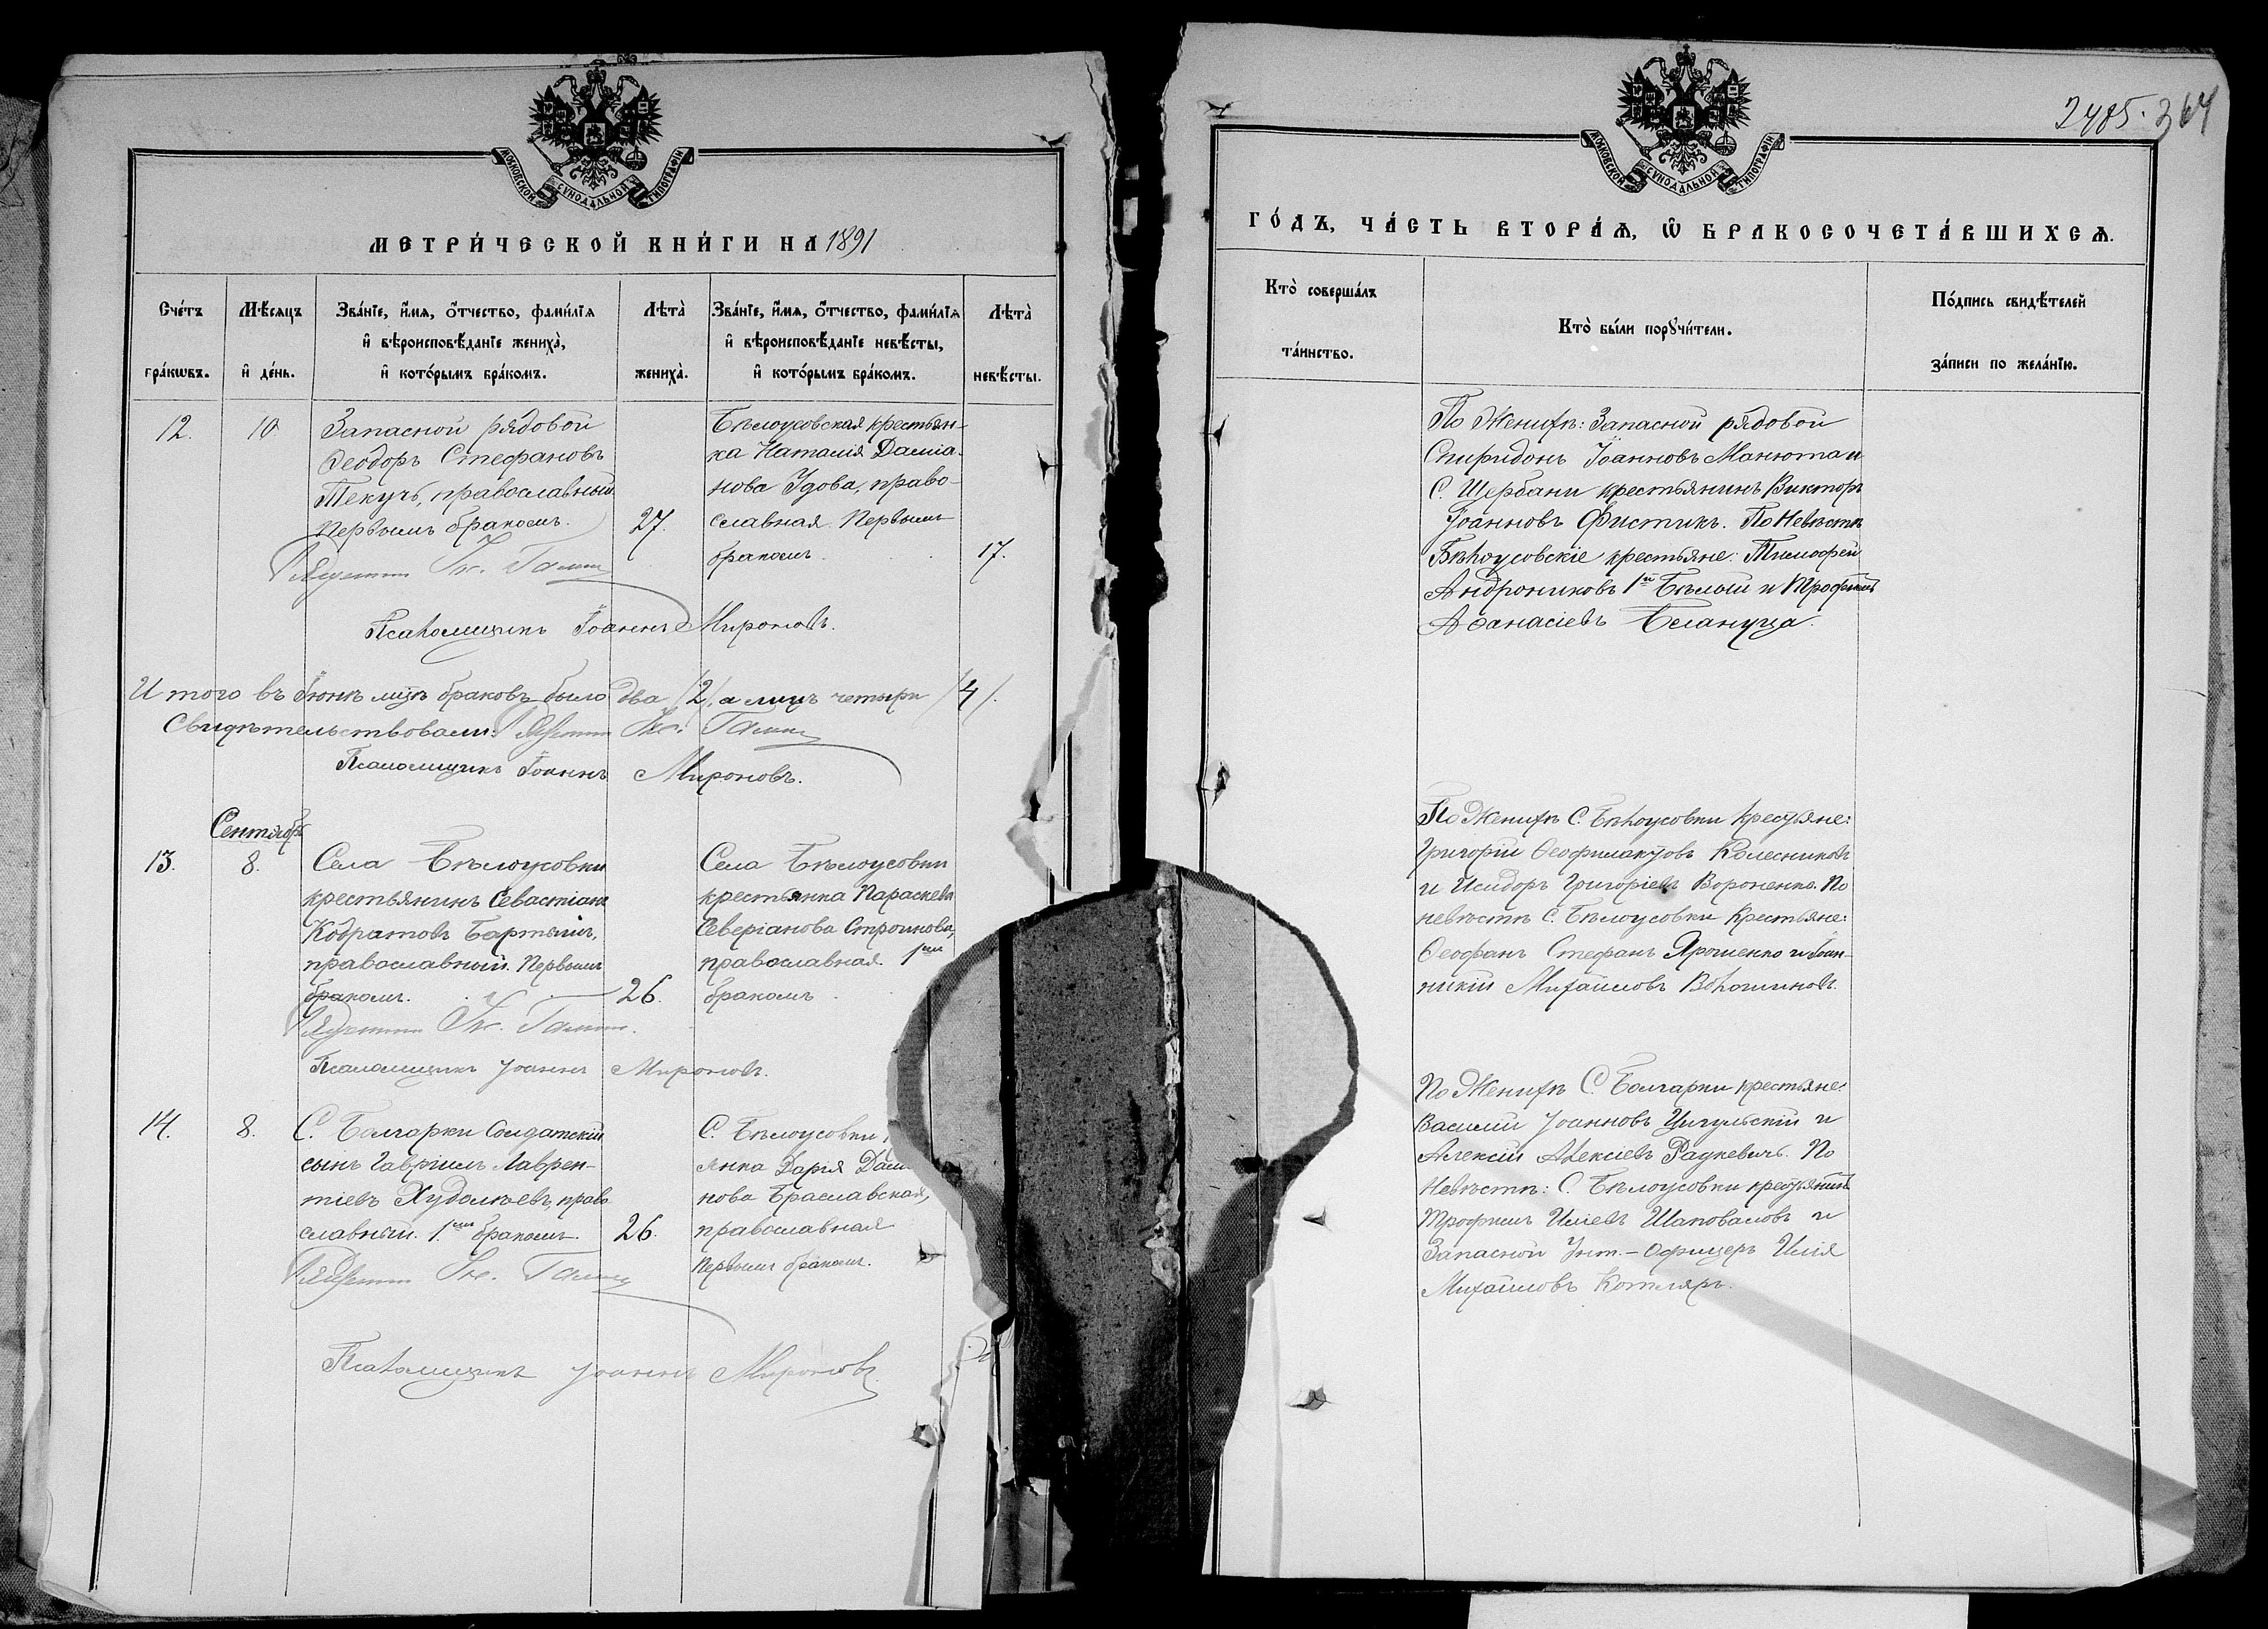 МОСКОВСКОЙ СУНОДАЛЬНОЙ ТИПОГРАФІИ
МЕТРИ́ЧЕСКОЙ КНИ́ГИ НА 1891
Сче́тъ бра́кѡвъ.
Мѣ́сяцъ и҆ де́нь.
Зва́нїе, и҆́мя, ѻ҆́тчество, фами́лїя
и҆ вѣроисповѣ́данїе жениха̀,
и҆ кото́рымъ бра́комъ.
Лѣта̀ жениха̀.
Зва́нїе, и҆́мя, ѻ҆́тчество, фами́лїя
и҆ вѣроисповѣ́данїе невѣ́сты,
и҆ кото́рымъ бра́комъ.
Лѣта̀ невѣ́сты.
12.
10
Запасной рядовой
Ѳеодоръ Стефановъ
Текучъ, православный.
Первымъ бракомъ.
27.
Бѣлоусовская крестьян-
ка Наталія Даміа-
нова Удова, право-
славная. Первымъ
бракомъ
17.
Псаломщикъ Іоаннъ Мироновъ.
Итого въ Іюнѣ мцѣ браковъ было два /2/, а лицъ четыри /4/.
Свидѣтельствовали:
Псаломщикъ Іоаннъ Мироновъ.
Сентябрь
13.
8.
Села Бѣлоусовки
крестьянинъ Севастіанъ
Кодратовъ
православный. Первымъ
бракомъ.
26.
Села Бѣлоусовки
крестьянка Параскева
Северіанова
православная. 1мъ
бракомъ
Псаломщикъ Іоаннъ Мироновъ.
14.
8.
С. Болгарки Солдатскій
сынъ Гавріилъ Лаврен-
тіевъ Худолѣевъ, право
славный. 1мъ бракомъ.
26.
С. Бѣлоусовки
янка Дарія
нова Браславская,
православная
Первымъ бракомъ.
Псаломщикъ Іоаннъ Мироновъ.
2485. 364
МОСКОВСКОЙ СУНОДАЛЬНОЙ ТИПОГРАФІИ
ГО́ДЪ, ЧА́СТЬ ВТОРА́Я, Ѡ҆ БРАКОСОЧЕТА́ВШИХСЯ.
Кто̀ соверша́лъ та́инство.
Кто̀ бы́ли порꙋчи́тели.
По́дпись свидѣ́телей за́писи по жела́нїю.
По Женихѣ: Запасной рядовой
Спиридонъ Іоанновъ Манюта и
С. Щербани крестьянинъ Викторъ
Іоанновъ Фистикъ. По Невѣстѣ
Бѣлоусовскіе крестьяне: Тимофей
Андрониковъ 1й Бѣлый и Трофимъ
Аѳанасіевъ
По Женихѣ С. Бѣлоусовки Крестьяне:
Григорій Ѳеофилактовъ Колесниковъ
и Исидоръ Григоріевъ Вороненко. По
невѣстѣ С. Бѣлоусовки Крестьяне:
Ѳеофанъ Стефанъ Ярошенко и Іоан-
никій Михайловъ Волошиновъ.
По Женихѣ С. Болгарки крестьяне:
Василій Іоанновъ Цигульскій и
Алексій Алексіевъ Радкевичъ. По
Невѣстѣ: С. Бѣлоусовки крестьянинъ
Трофимъ Иліевъ Шаповаловъ и
Запасной Унт.-Офицеръ Илія
Михайловъ Котляръ.